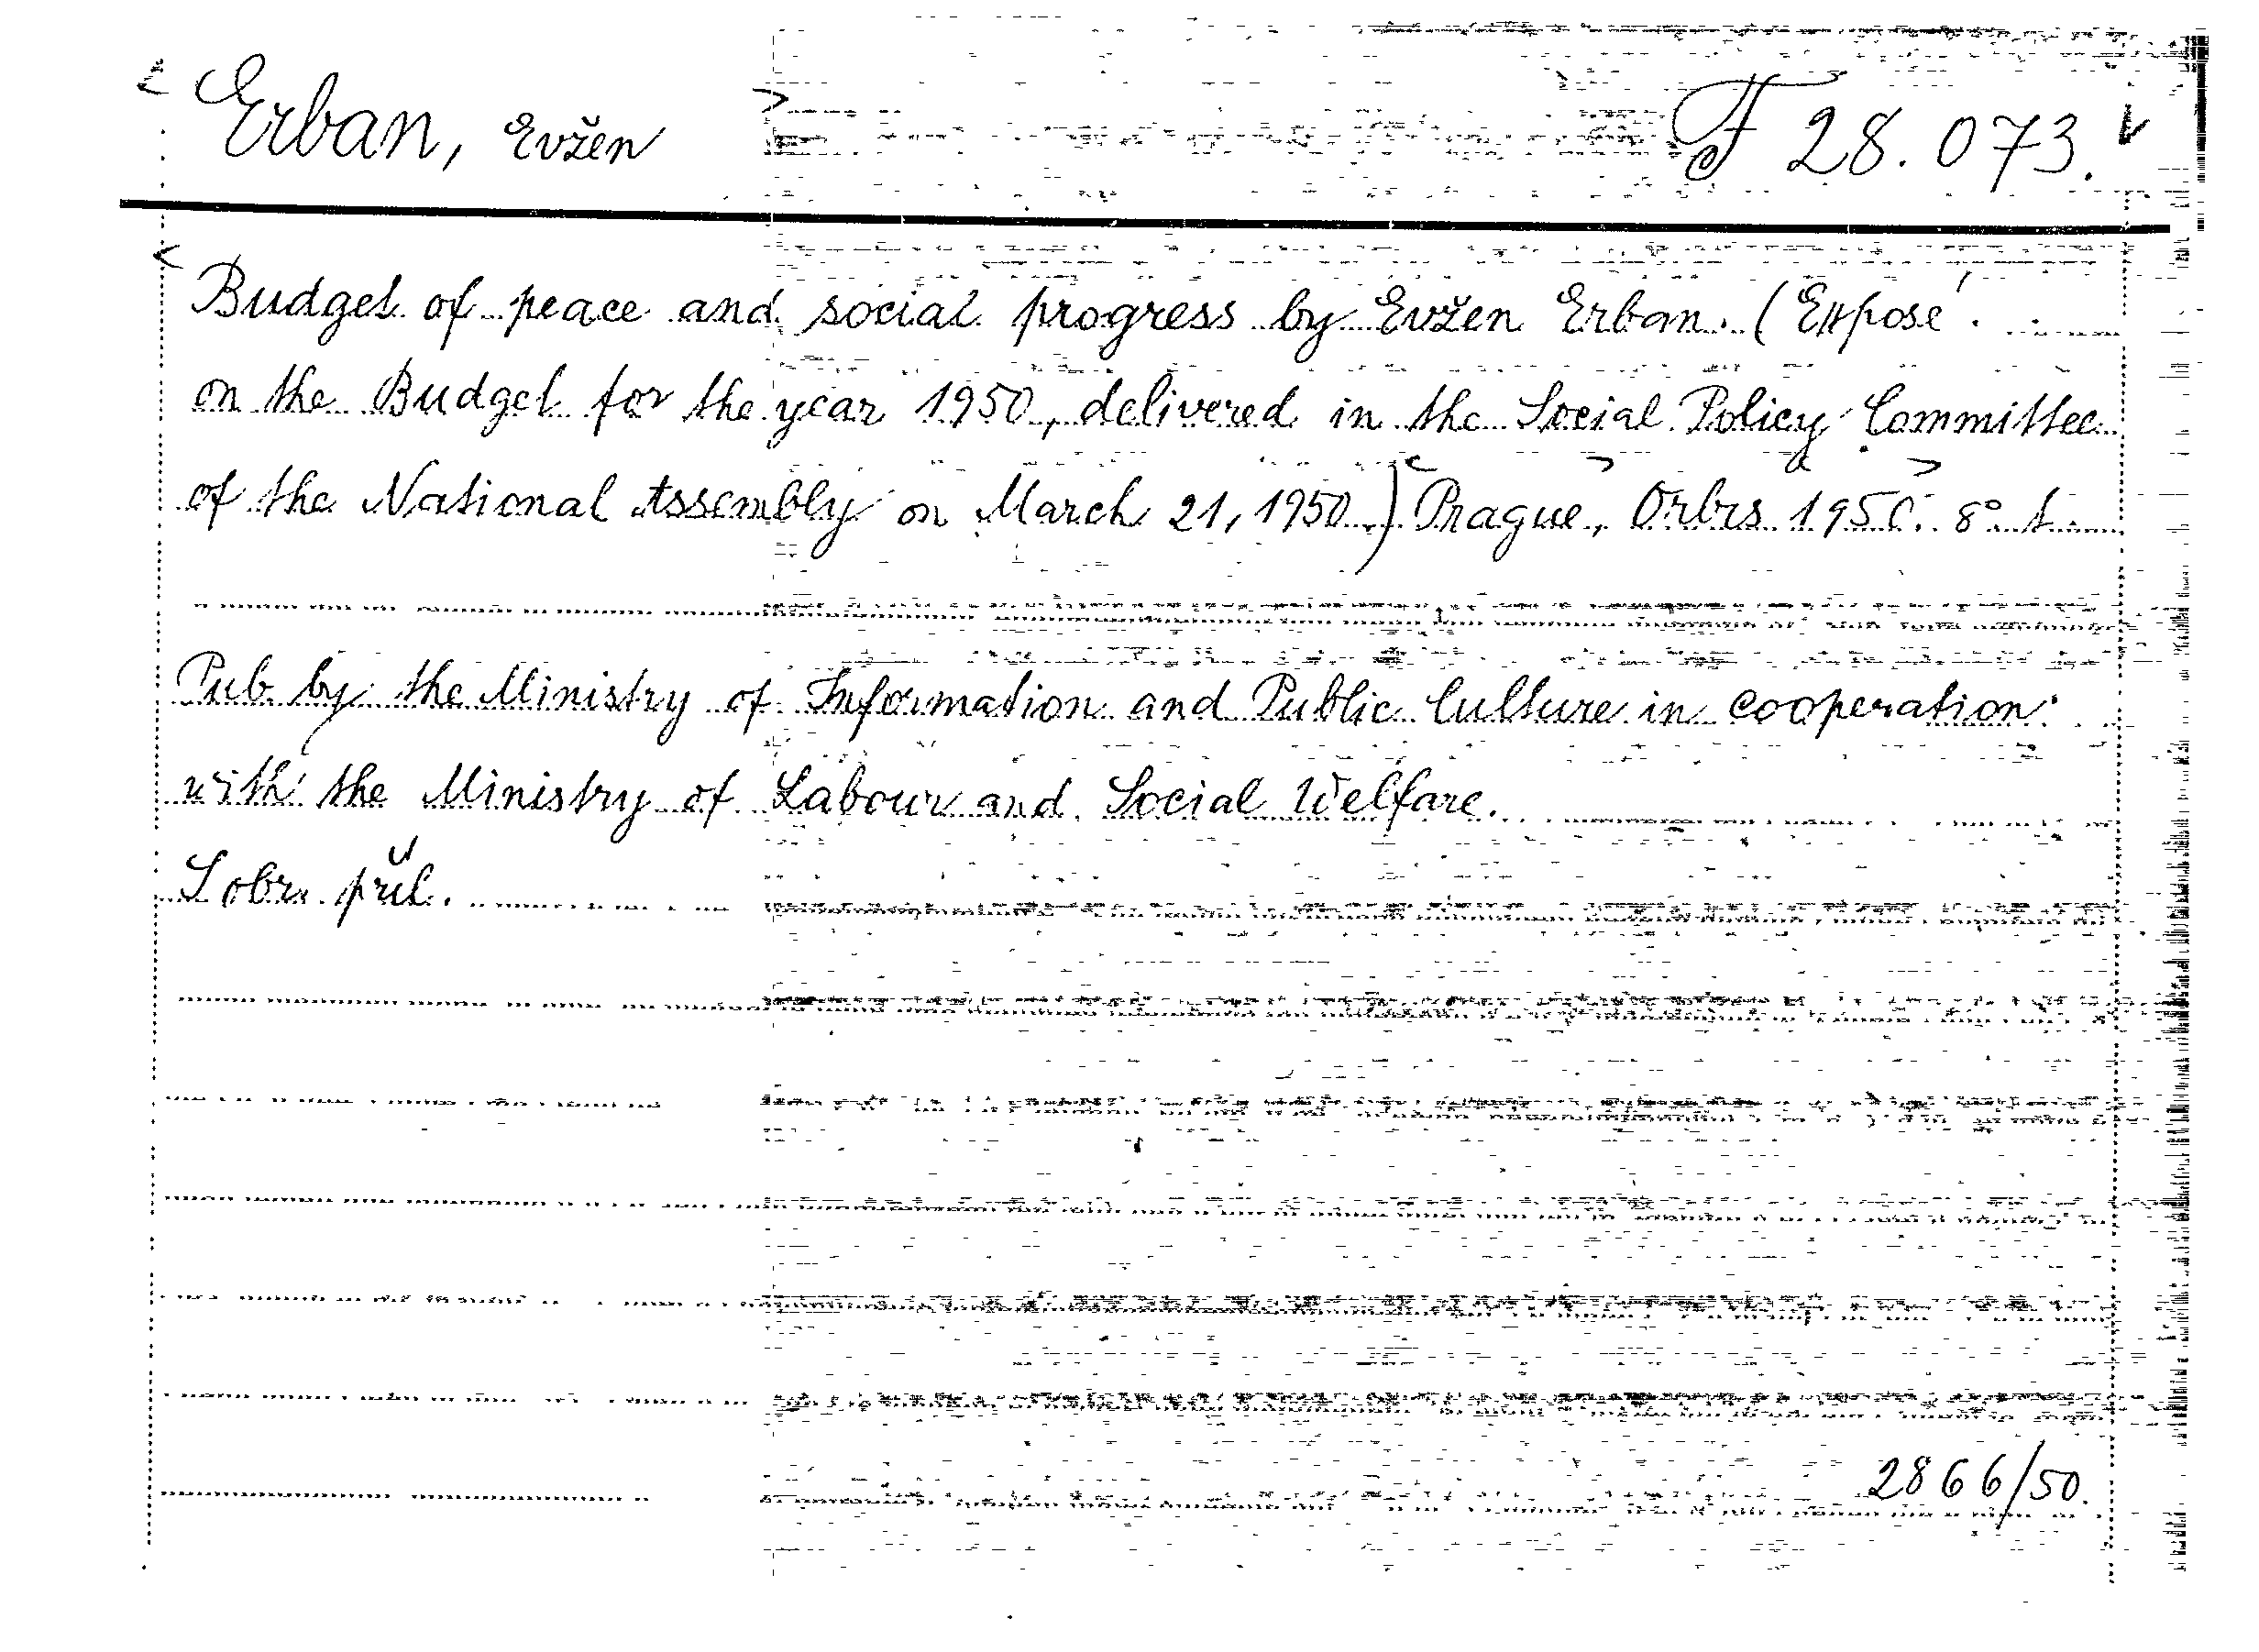 Erban, Evžen F 28.073.
Budget of peace and social progress by Evžen Erban. (Exposé
on the Budget for the year 1950, delivered in the Social Policy Committee
of the National Assembly on March 21, 1950.) Prague, Orbis 1950. 8°.
Pub. by the Ministry of Information and Public Culture in cooperation
with the Ministry of Labour and Social Welfare.
S obr. příl.
2866/50.